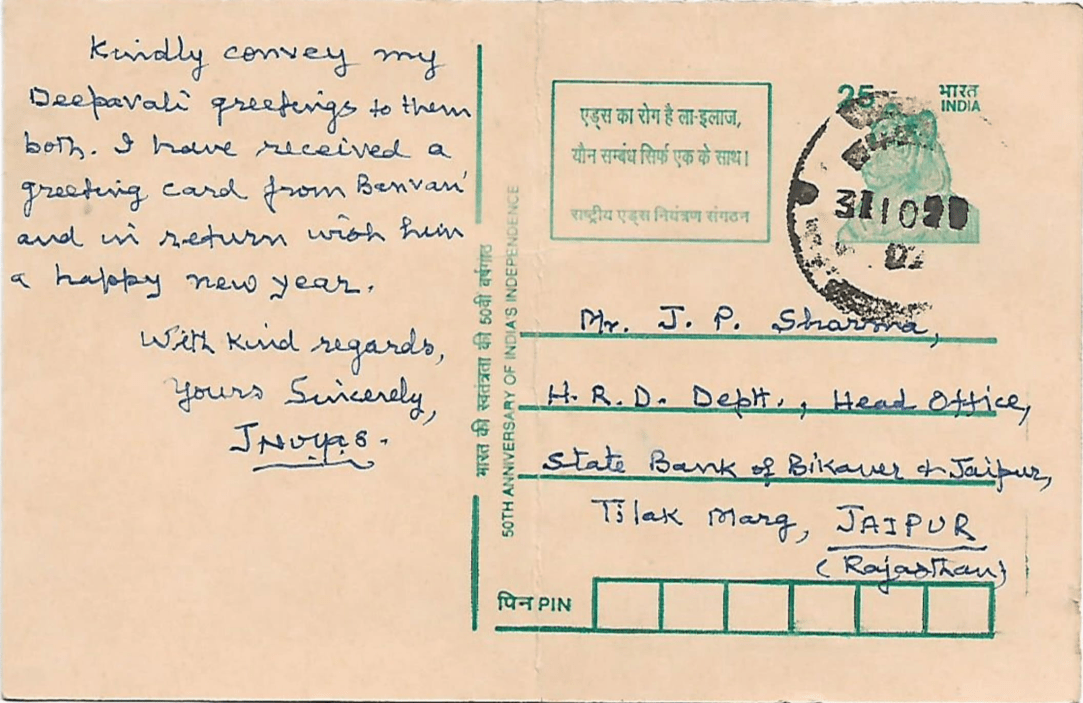 Kindly convey my
Deepavali greetings to them
both. I have received a
greeting card from Banvari
and in return wish him
a happy new year.
With kind regards,
Yours Sincerely,
JNVyas.
भारत की स्वतंत्रता की 50वीं वर्षगांठ
50TH ANNIVERSARY OF INDIA'S INDEPENDENCE
एड्स का रोग है ला-इलाज,
यौन सम्बंध सिर्फ एक के साथ।
राष्ट्रीय एड्स नियंत्रण संगठन
25
भारत
INDIA
Mr. J. P. Sharma,
H. R. D. Deptt., Head Office,
State Bank of Bikaner & Jaipur,
Tilak Marg, JAIPUR
(Rajasthan)
पिन PIN